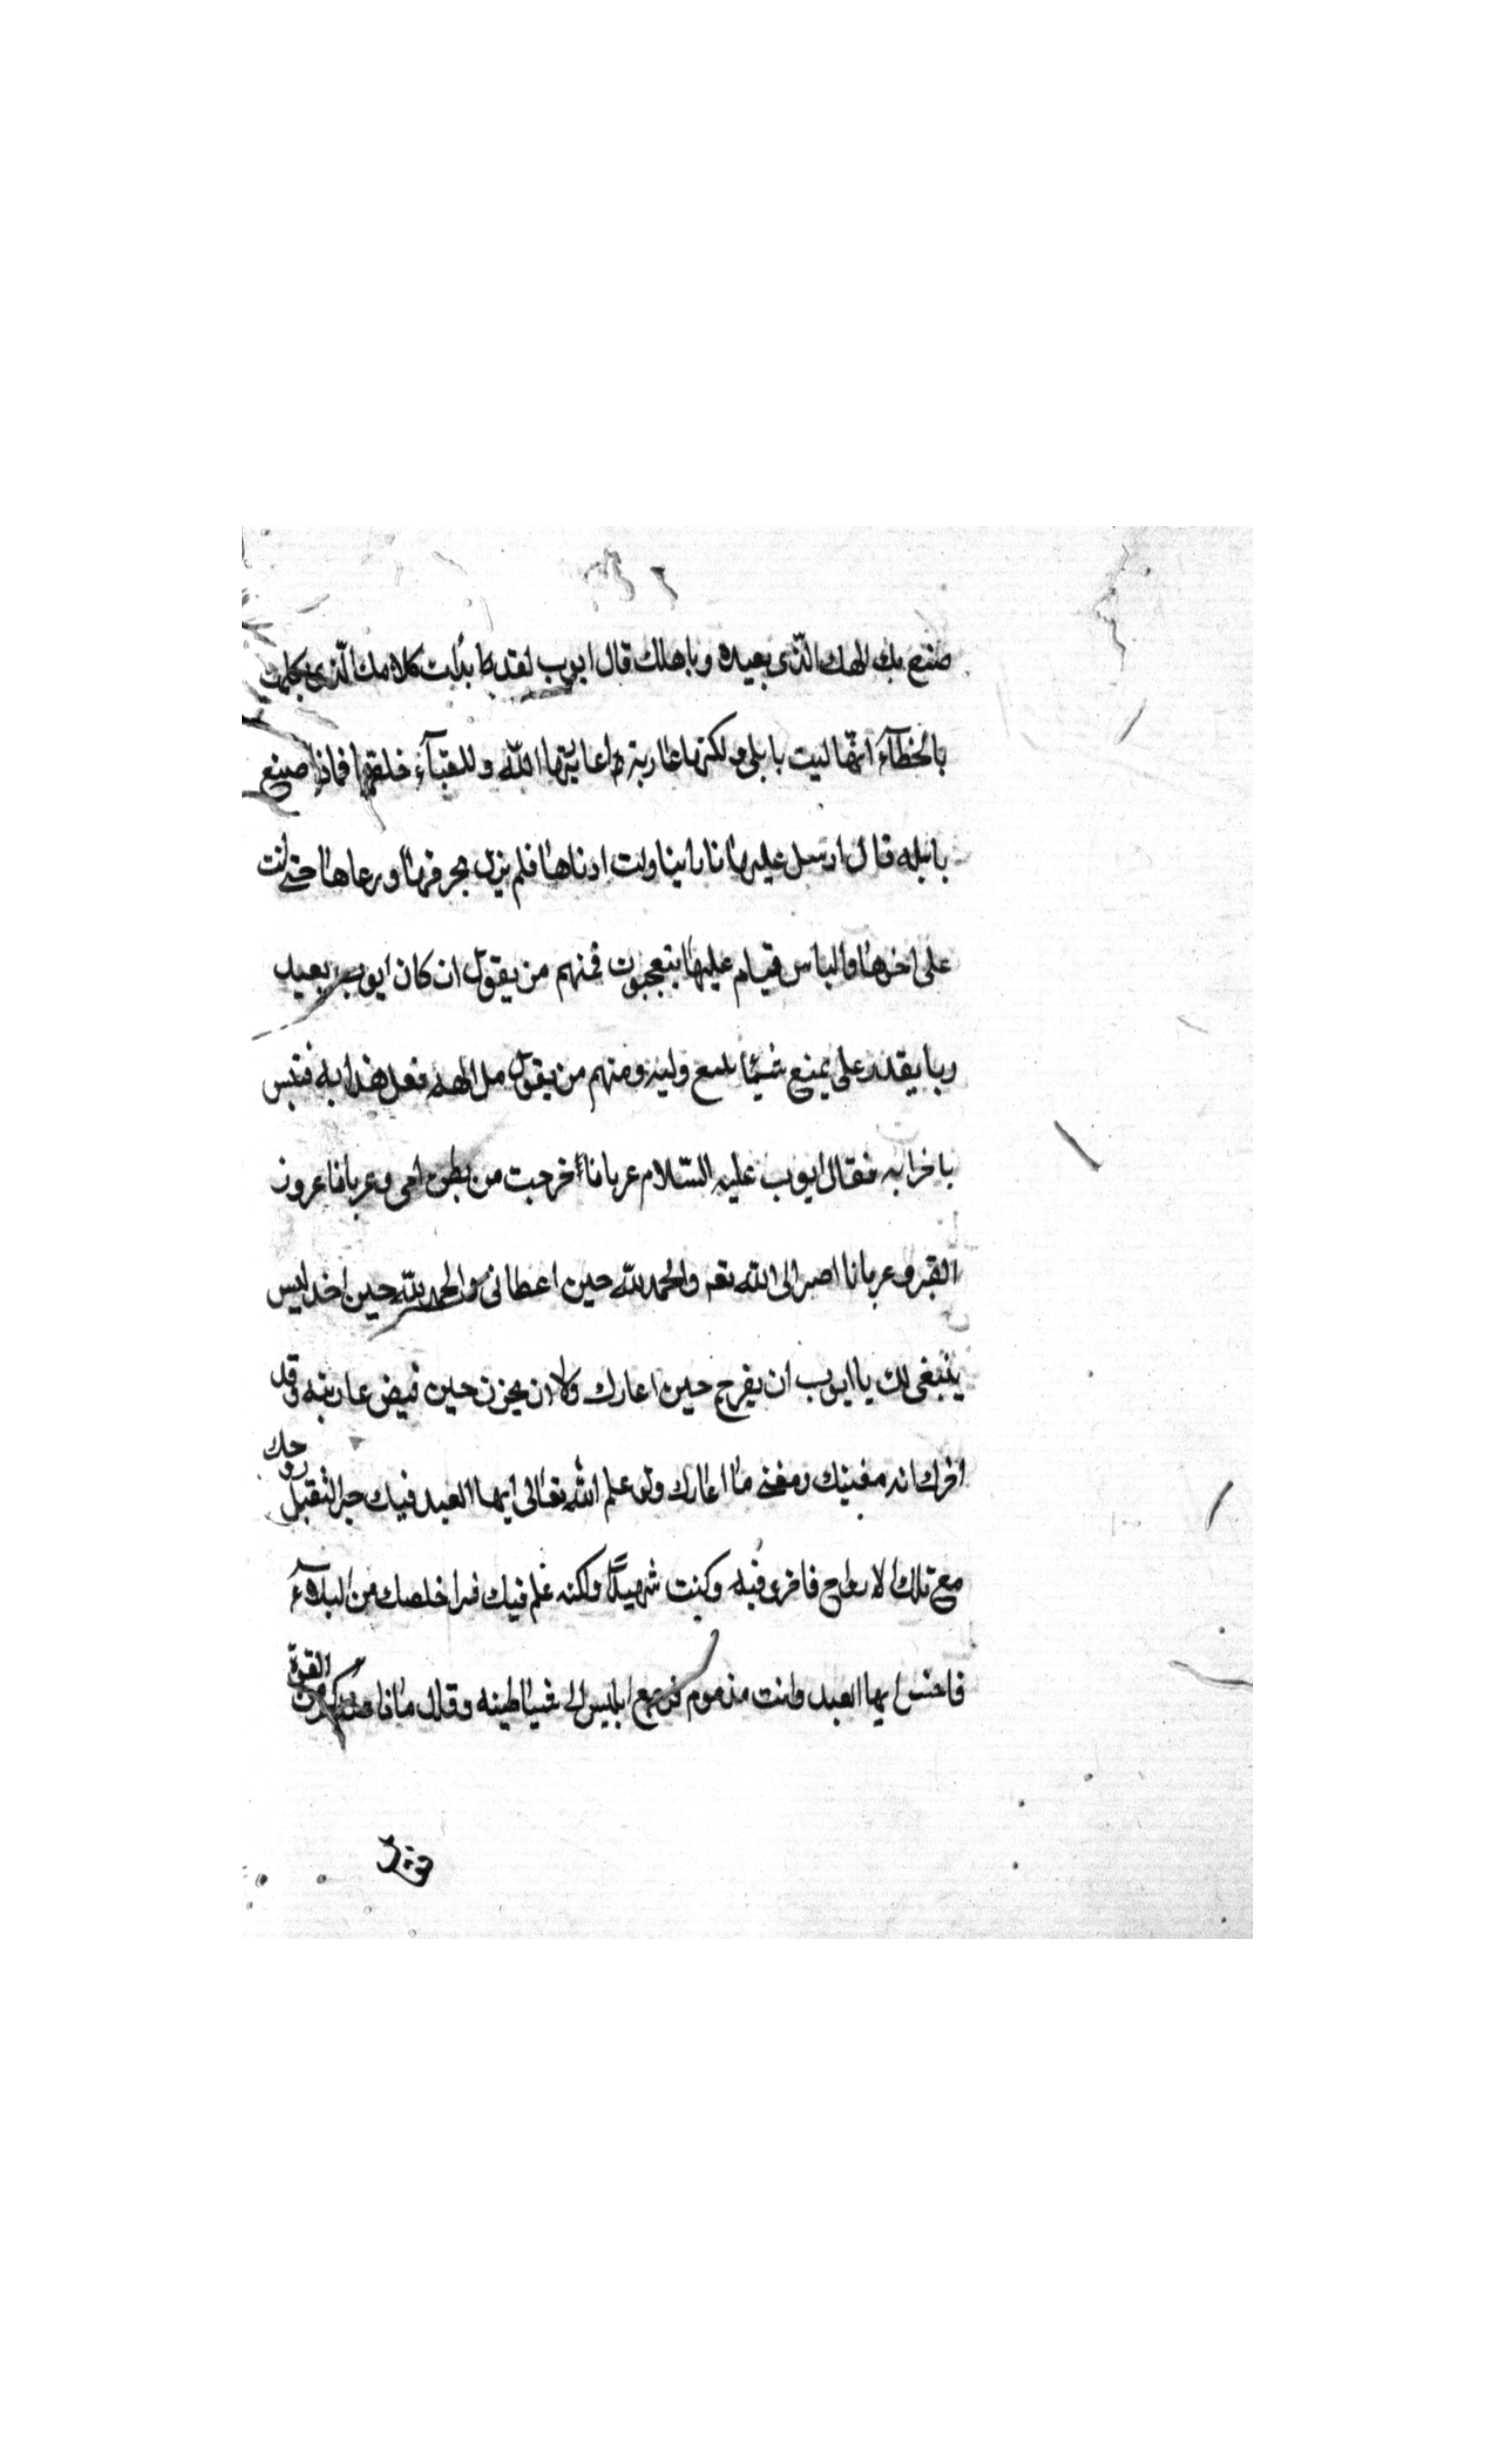 صنع بك الهك الذى بعيده وباهلك قال ايوب لقد بدأت كلامك الذى تكلمت
بالخطآء انها ليت بابلى ولكنها عارية اعاينها الله وللفنآء خلقها فماذا صنع
بابله قال ارسل عليها نارا ينا ولت ادناها فلم يزل يحرقها ورعاها حتى اتت
على اخرها والباس قيام عليها يتعجبون فمنهم من يقول ان كان ايوب بعيد
ربا يقدر على يمنع شيئا وليه ومنهم من يقول الهه فعل هذا به
فقال ايوب عليه السلام عريانا اخرجت من بطن امى وعريانا
القبر وعريانا اصر الى الله تعم والحمد لله حين اعطانى والحمد لله حين اخذ ليس
ينبغى لك يا ايوب ان يفرح حين اعارك ولا ان يحزن حين قبض عاريته وقد
افرك انه مفنيك ومفنى ما اعارك ولو علم الله تعالى ايها العبد فيك خيرا لتقبل روحك
مع تلك الارواح فاخرى فيه وكنت شهيدا ولكنه علم فيك شرا خلصك من البلاء
فاخس ايها العبد وانت مذموم فرجع ابليس الى شياطينه وقال ماذا عندكم من القوة